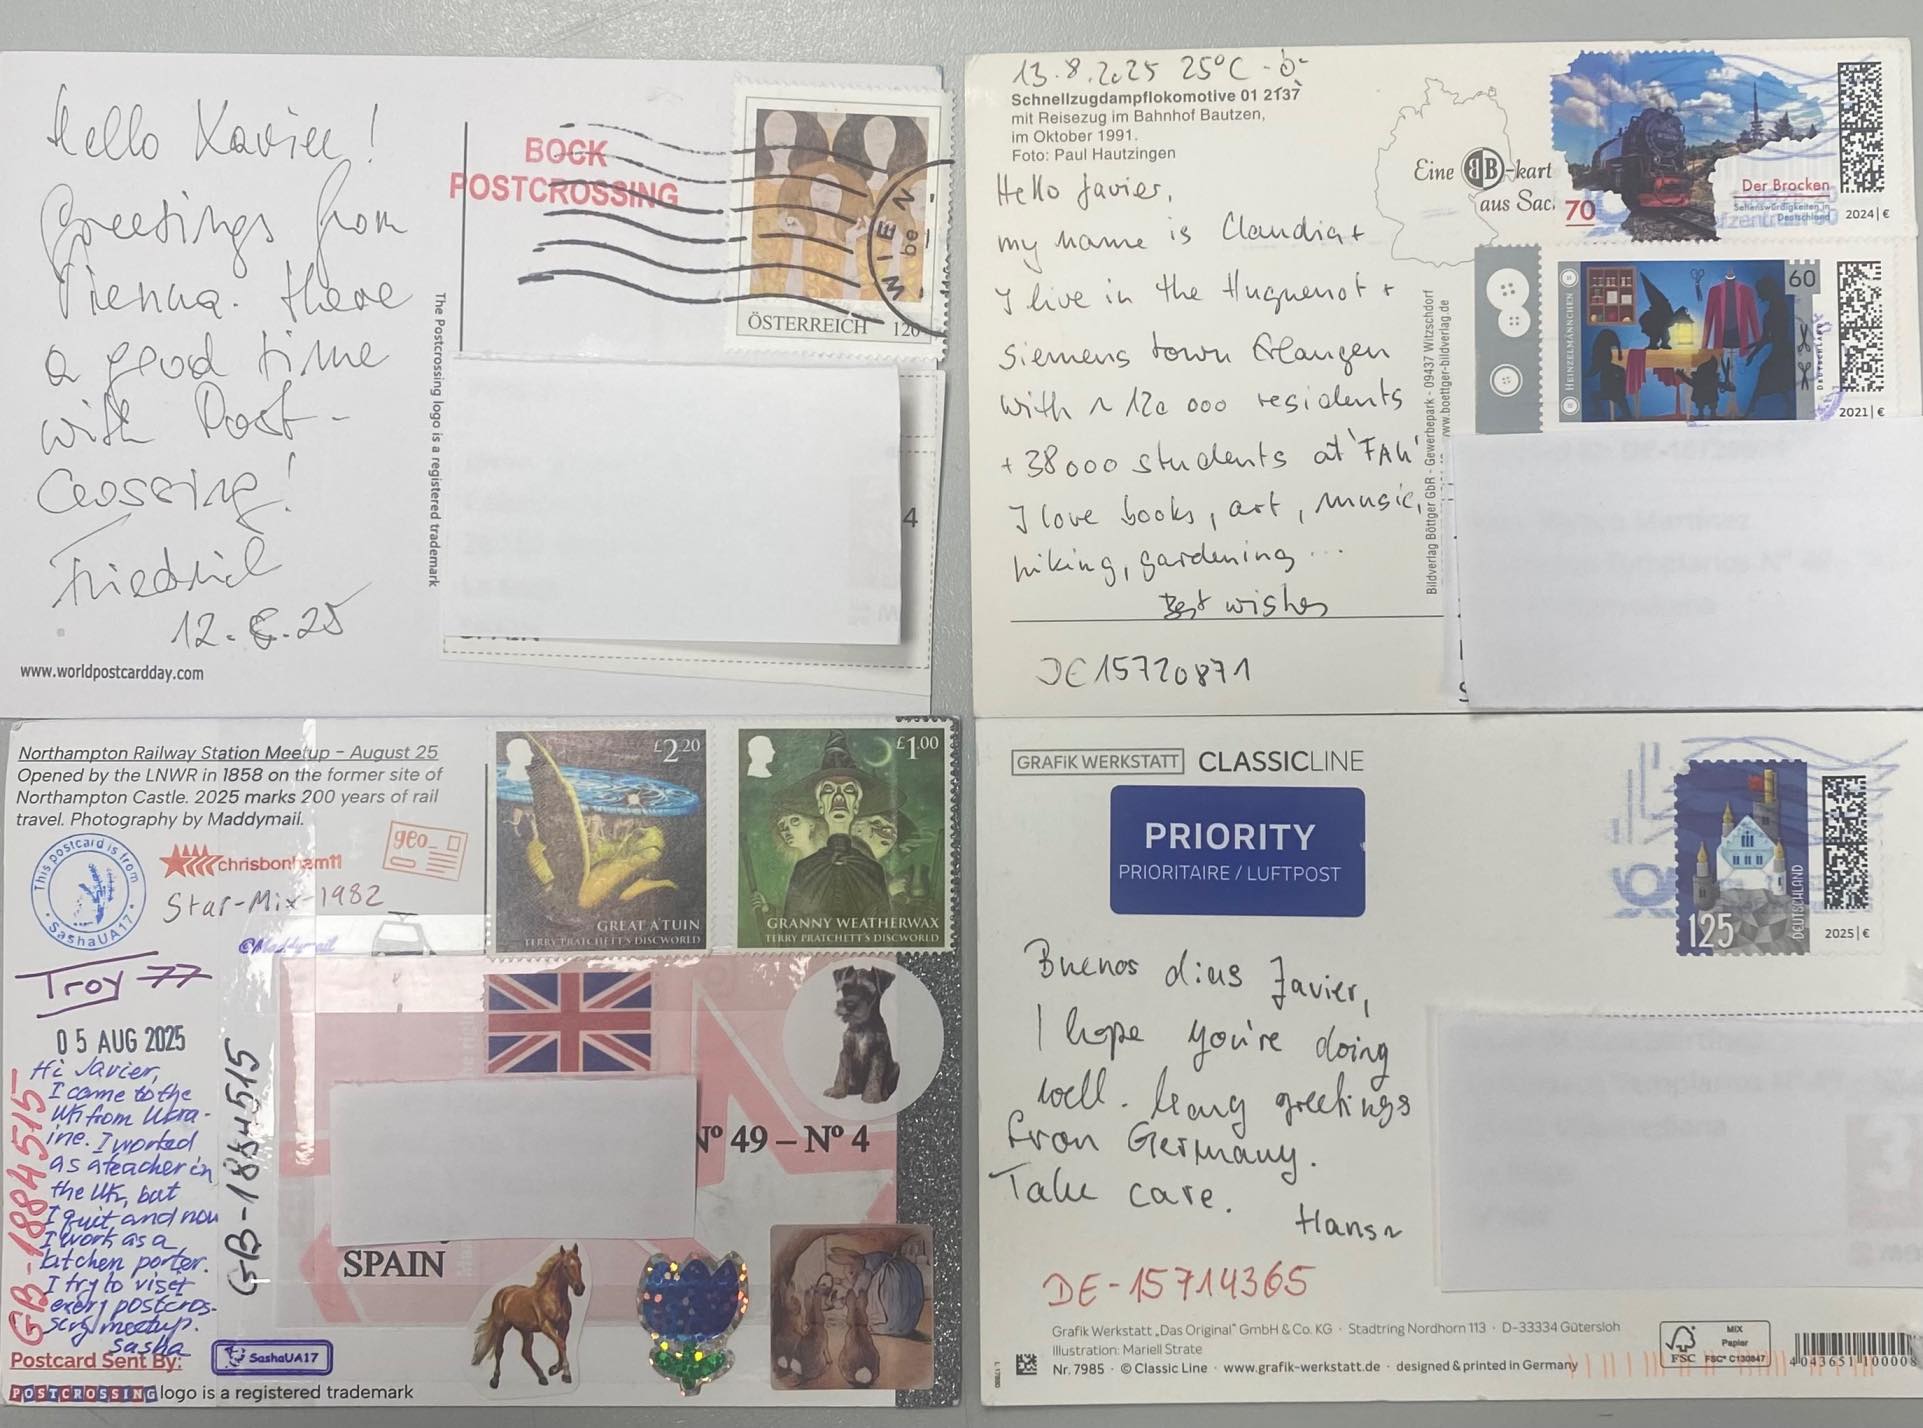 Hello Xavier!
Greetings from
Vienna. Have
a good time
with Post-
Crossing!
Friedrich
12.8.25
www.worldpostcardday.com
The Postcrossing logo is a registered trademark
BOCK
POSTCROSSING
WIEN
be
ÖSTERREICH 120
4
13.8.2025 25°C
Schnellzugdampflokomotive 01 2137
mit Reisezug im Bahnhof Bautzen,
im Oktober 1991.
Foto: Paul Hautzingen
Hello Javier,
my name is Claudia +
I live in the Huguenot +
siemens town Erlangen
with ~ 120 000 residents
+ 38000 students at 'FAU'
I love books, art, music,
hiking, gardening ...
Best wishes
DE15720871
Eine BB-kart
aus Sac.
Bildverlag Böttger GbR - Gewerbepark - 09437 Witzschdorf
www.boettger-bildverlag.de
Der Brocken
Sehenswürdigkeiten in
Deutschland
70
2024 | €
HEINZELMÄNNCHEN
60
2021 | €
Northampton Railway Station Meetup – August 25
Opened by the LNWR in 1858 on the former site of
Northampton Castle. 2025 marks 200 years of rail
travel. Photography by Maddymail.
This postcard is from
SashaUA17
chrisbonham11
geo
Star-Mix-1982
@Maddymail
Troy 77
05 AUG 2025
Hi Javier,
I came to the
UK from Ukra-
ine. I worked
as a teacher in
the UK, but
I quit and now
I work as a
kitchen porter.
I try to viset
every postcros-
sing meetup.
Sasha
GB-1884515
GB-1884515
Postcard Sent By:
SashaUA17
POSTCROSSING logo is a registered trademark
£2.20
GREAT A'TUIN
TERRY PRATCHETT'S DISCWORLD
£1.00
GRANNY WEATHERWAX
TERRY PRATCHETT'S DISCWORLD
Nº 49 – Nº 4
SPAIN
GRAFiK WERKSTATT CLASSICLINE
PRIORITY
PRIORITAIRE / LUFTPOST
125
DEUTSCHLAND
2025 | €
Buenos dias Javier,
I hope you're doing
well. Many greetings
from Germany.
Take care.
DE-15714365
Grafik Werkstatt „Das Original" GmbH & Co. KG · Stadtring Nordhorn 113 · D-33334 Gütersloh
Illustration: Mariell Strate
Nr. 7985 · © Classic Line · www.grafik-werkstatt.de · designed & printed in Germany
FSC
MIX
Papier
FSC® C130847
4 043651 100008